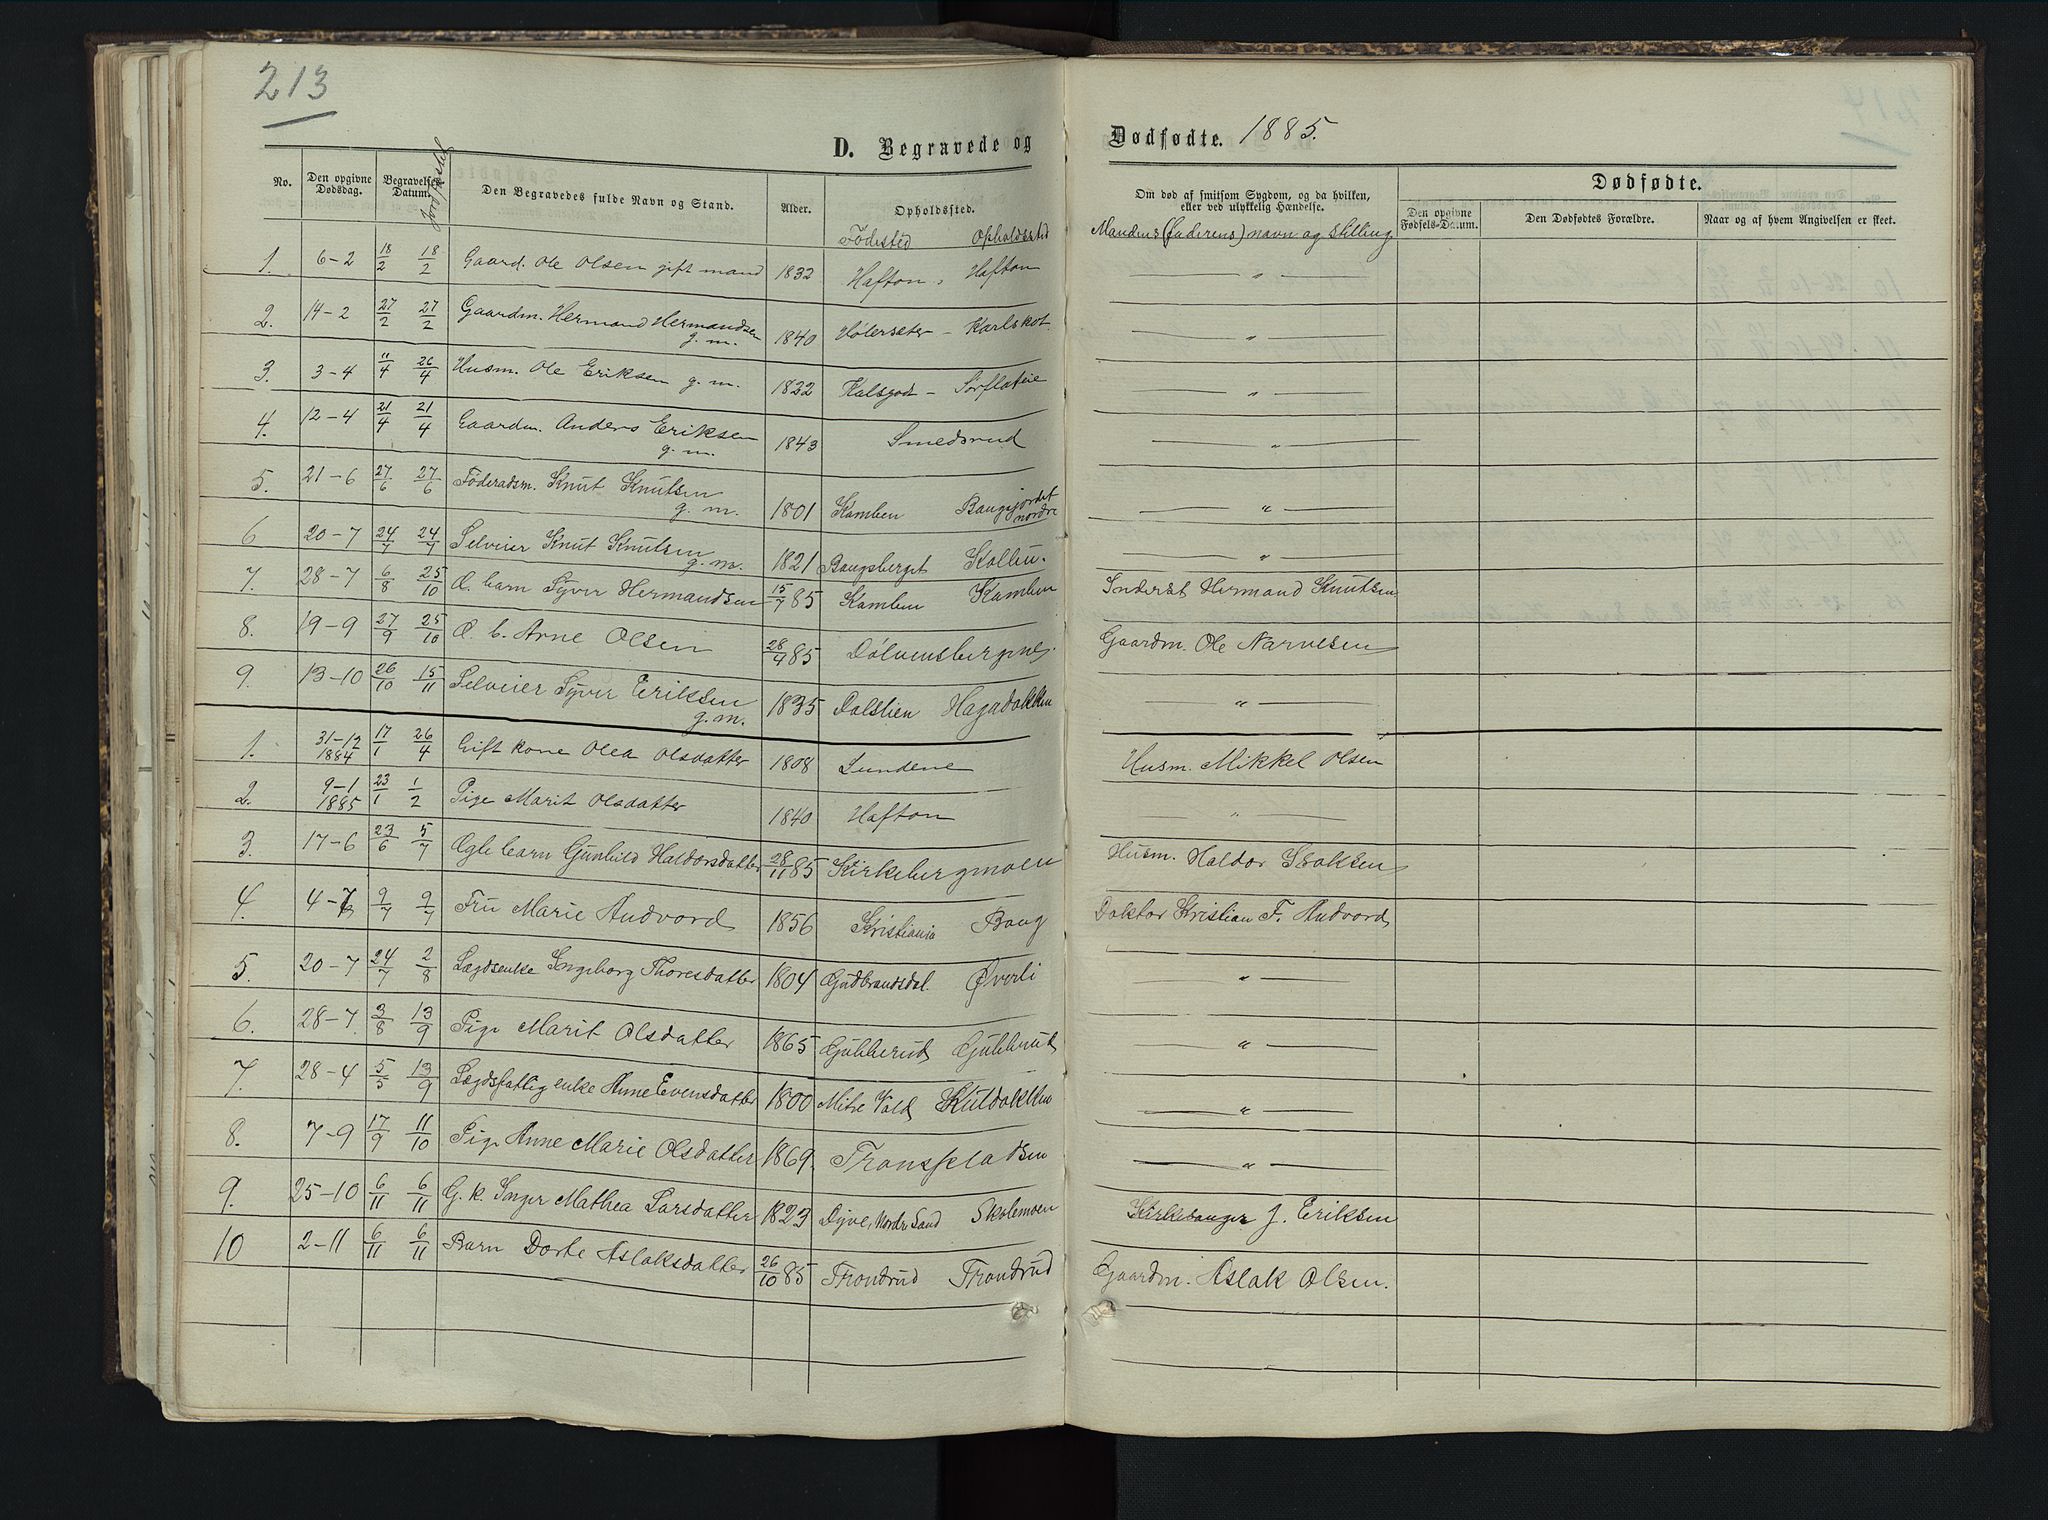 213
D. Begravede og Dødfødte. 1885.
No. Den opgivne Dødsdag. Begravelses Datum. Jordfæstet Den Begravedes fulde Navn og Stand. Alder. Opholdssted. Om død af smitsom Sygdom, og da hvilken, eller ved ulykkelig Hændelse. Dødfødte.
Den opgivne Fødsels-Datum. Den Dødfødtes Forældre. Naar og af hvem Angivelsen er skeet.
Födested Opholdssted Mandens (faderens) navn og stilling
1. 6-2 18/2 18/2 Gaard. Ole Olsen gift mand 1832 Hafton, Hafton — " —
2. 14-2 27/2 27/2 Gaardm. Hermand Hermandsen g. m. 1840 Hólersæter - Karlskot — " —
3. 3-4 11/4 26/4 Husm. Ole Eriksen g. m. 1832 — " —
4. 12-4 21/4 21/4 Gaardm. Anders Eriksen g. m. 1843 Smedsrud — " —
5. 21-6 27/6 27/6 Föderadsm. Knut Knutsen g. m. 1801 Kamben Baugsjordet nordre — " —
6 20-7 24/7 24/7 Selveier Knut Knutsen g. m. 1821 Baugsberget Kolbu. — " —
7. 28-7 6/8 25/10 Æ. barn Syver Hermandsen 15/7 85 Kamben Kamben Inderst Hermand Knutsen
8. 19-9 27/9 25/10 Æ. b. Arne Olsen 28/9 85 Gaardm. Ole Narvesen
9. 13-10 26/10 15/11 Selveier Syver Eriksen g. m. 1835 Dalslien Hagadokken — " —
1. 31-12 1884 17/1 26/4 Gift kone Olea Olsdatter 1808 Lundene Husm. Mikkel Olsen
2. 9-1 1885 23/1 1/2 Pige Marit Olsdatter 1840 Hafton — " —
3. 17-6 23/6 5/7 Ægte barn Gunhild Haldorsdatter 28/11 85 Kirkebergmoen Husm. Haldor Isaksen
4. 4-7 9/7 9/7 Frú Marie Andvord 1856 Kristiania Baug Doktor Kristian F. Andvord
5. 20-7 24/7 2/8 Lægdsenke Ingeborg Thoresdatter 1804 Gudbrandsdal. Øverli — " —
6. 28-7. 3/8 13/9 Pige Marit Olsdatter 1865 Gubberud Gubberud — " —
7. 28-4 5/5 13/9 Lægdsfattig enke Anne Evensdatter 1800 Kuldokken — " —
8. 7-9 17/9 11/10 Pige Anne Marie Olsdatter 1869. — " —
9. 25-10 6/11 6/11 G. k. Inger Mathea Larsdatter 1823 Dyve, Nordr Land Skolemoen Kirkesanger J. Eriksen
10 2-11 6/11 6/11 Barn Dorte Aslaksdatter 26/10 85 Trondrud Trondrud Gaardm. Aslak Olsen.